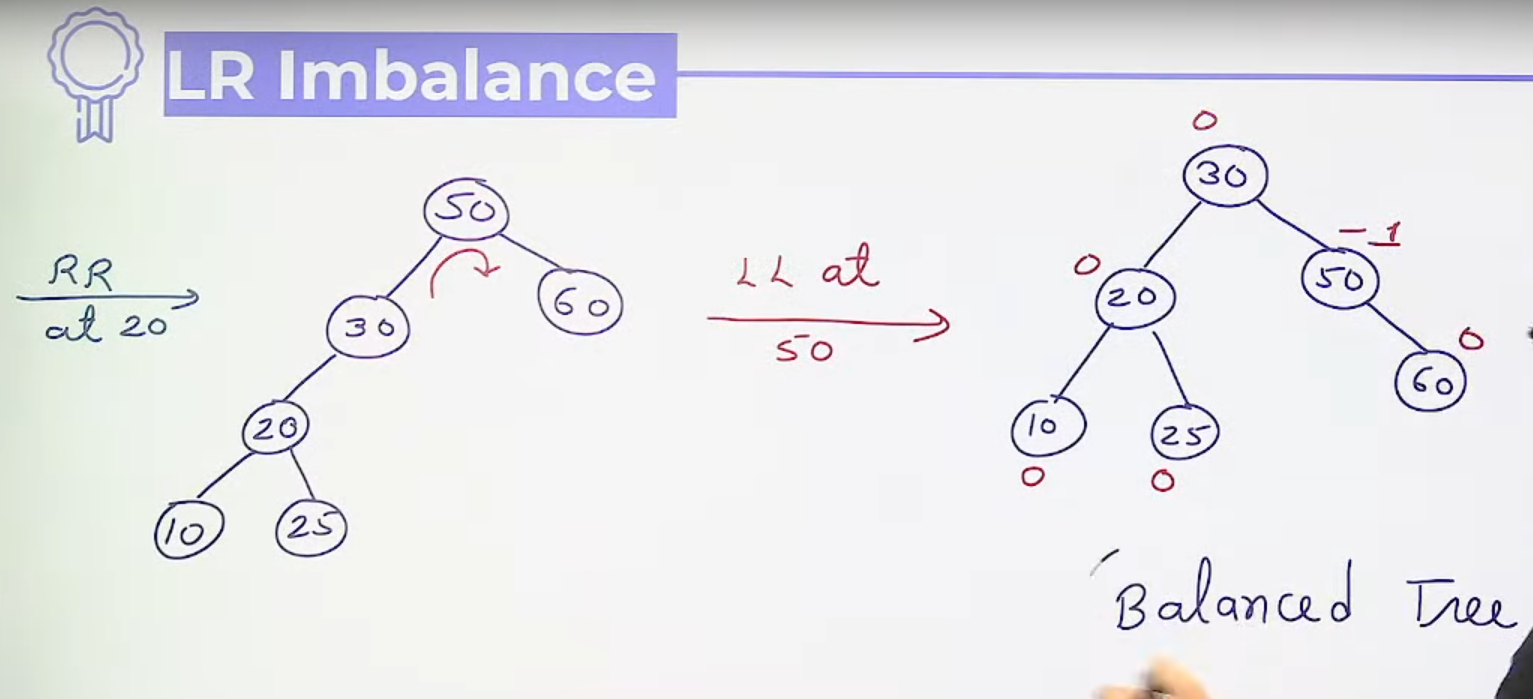 LR Imbalance
RR
at 20
50
30
60
20
10
25
LL at
50
0
30
-1
0
20
50
0
60
10
25
0
0
Balanced Tree